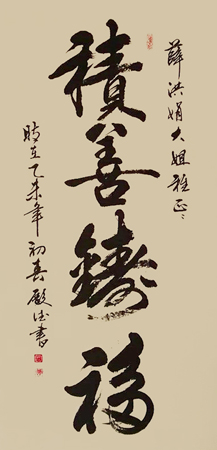 薛洪娟大姐雅正
積善鑄福
时在乙未年初春殿书